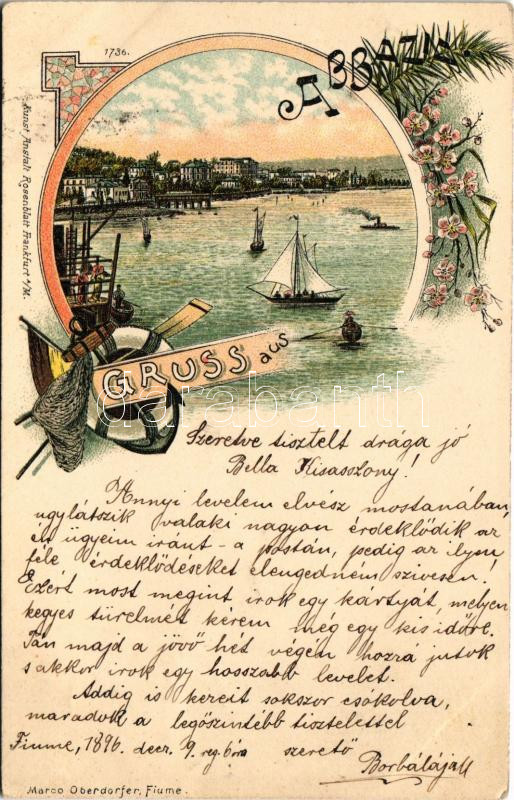 1736.
ABBAZIA.
Kunst Anstalt Rosenblatt Frankfurt a/M.
GRUSS aus
darabanth
Szeretve tisztelt drága jó
Bella Kisasszony!
Annyi levelem elvész mostanában,
ugylátszik valaki nagyon érdeklődik az
én ügyeim iránt - a postán, pedig az ilyen
féle érdeklődéseket elengedném szivesen.
Ezért most megint irok egy kártyát, melyen
kegyes türelmét kérem még egy kis időre.
Tán majd a jövő hét végén hozzá jutok
s akkor irok egy hosszabb levelet.
Addig is kezeit sokszor csókolva,
maradok a legőszintébb tisztelettel
Fiume, 1896. decz. 9. reg. 6 óra szerető
Borbálája
Marco Oberdorfer, Fiume.